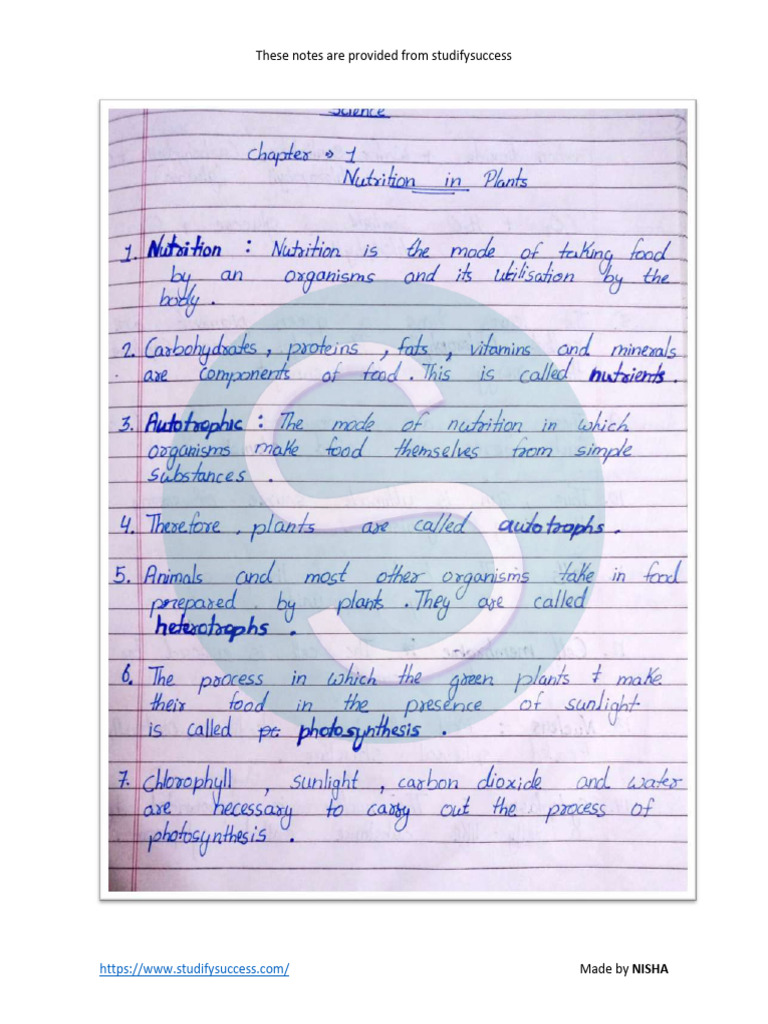 These notes are provided from studifysuccess
Science
Chapter → 1
Nutrition in Plants
1. Nutrition : Nutrition is the mode of taking food
by an organisms and its utilisation by the
body .
2. Carbohydrates , proteins , fats , vitamins and minerals
are components of food . This is called nutrients .
3. Autotrophic : The mode of nutrition in which
organisms make food themselves from simple
substances .
4. Therefore , plants are called autotrophs .
5. Animals and most other organisms take in food
prepared by plants . They are called
heterotrophs .
6. The process in which the green plants make
their food in the presence of sunlight
is called photosynthesis .
7. Chlorophyll , sunlight , carbon dioxide and water
are necessary to carry out the process of
photosynthesis .
https://www.studifysuccess.com/
Made by NISHA